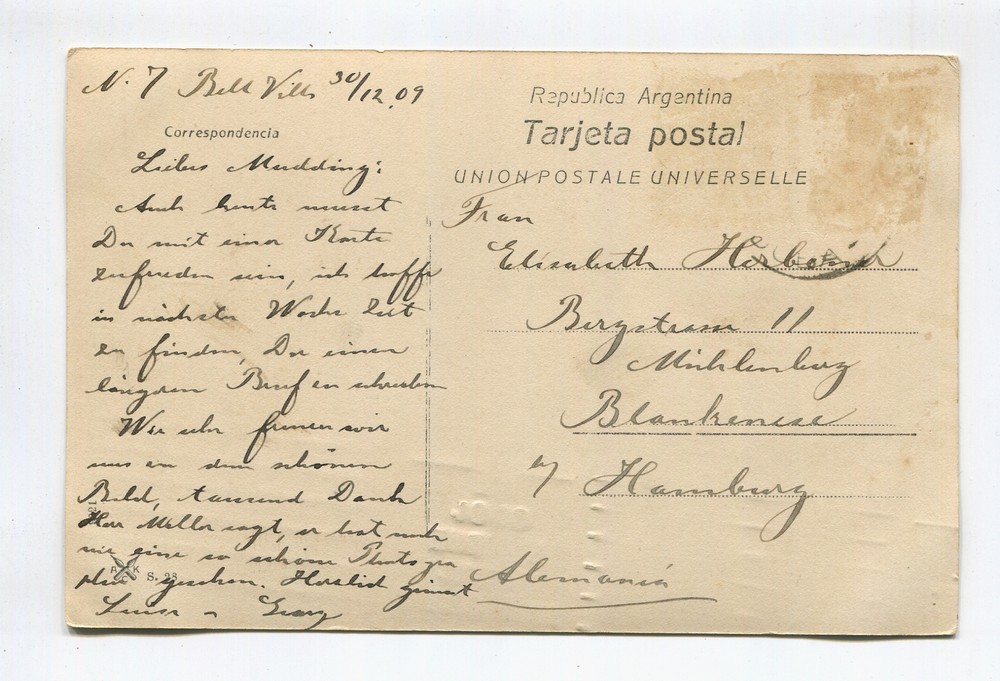 N. 7 Bell Ville 30/12.09
Correspondencia
Liebes Mudding:
Auch heute musst
Du mit einer Karte
zufrieden sein, ich hoffe
in nächster Woche Zeit
zu finden, Dir einen
längeren Brief zu schreiben
Wie sehr freuen wir
uns zu dem schönen
Bild, tausend Dank
Herr Müller sagt, er hat noch
nie eine so schöne Photogra
phie gesehen. Herzlich grüsst
Luise u Georg
A K
S. 28
Republica Argentina
Tarjeta postal
UNION POSTALE UNIVERSELLE
Frau
Elisabeth
Bergstrasse 11
Mühlenberg
Blankenese
b/ Hamburg
Alemania